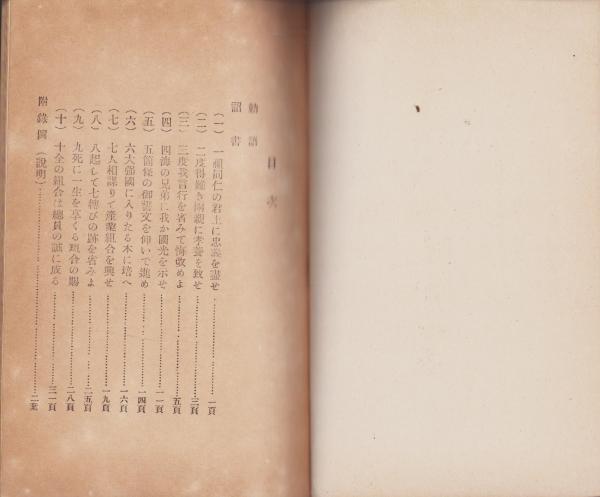 目次
勅語
詔書
(一) 一視同仁の君上に忠義を盡せ………一頁
(二) 二度得難き兩親に孝養を致せ………三頁
(三) 三度我言行を省みて悔改めよ………五頁
(四) 四海の兄弟に我か國光を示せ………一一頁
(五) 五箇條の御誓文を仰いで進め………一四頁
(六) 六大强國に入りたる本に培へ………一六頁
(七) 七人相謀りて產業組合を興せ………一九頁
(八) 八起して七轉びの跡を省みよ………二五頁
(九) 九死に一生を享くる組合の賜………二八頁
(十) 十全の組合は總員の誠に成る………三一頁
附錄圖(說明)………